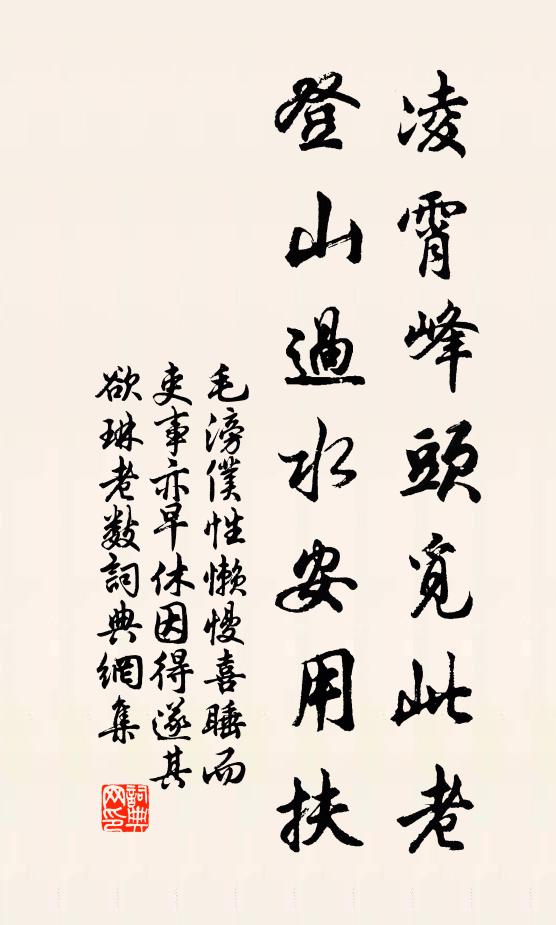 凌霄峰頭覓此老
登山過水安用扶
毛滂僕性懶慢喜睡而
吏事亦早休因得遂其
欲琳老數詞典網集
詞典
网印